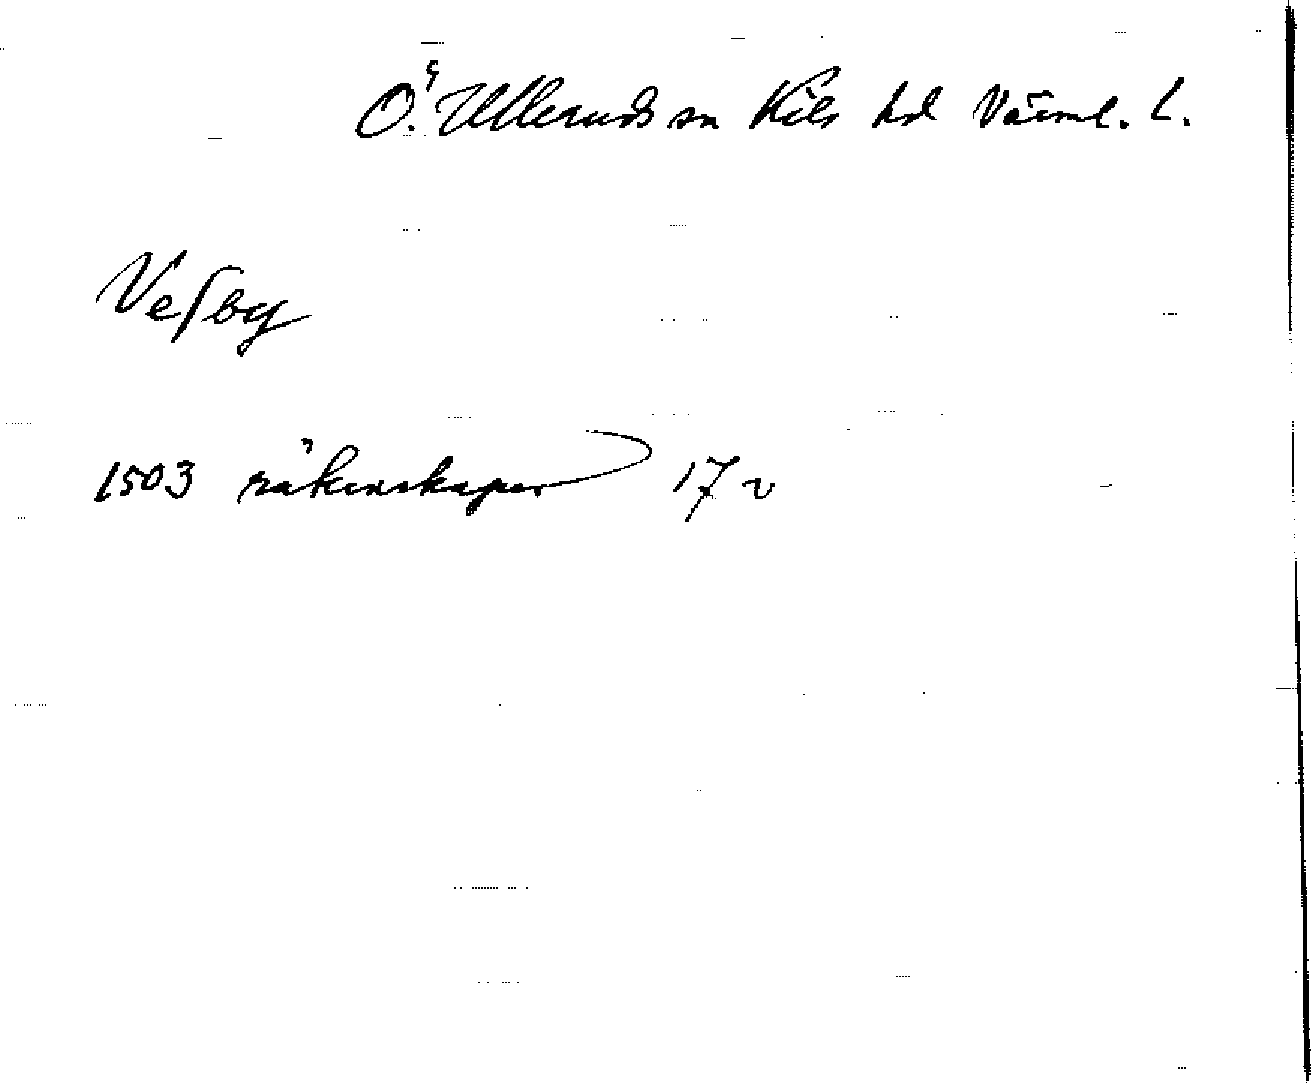 Ö. Ulleruds sn Kils hd Värml. L.
Veſby
1503 räkenskaper 17 v